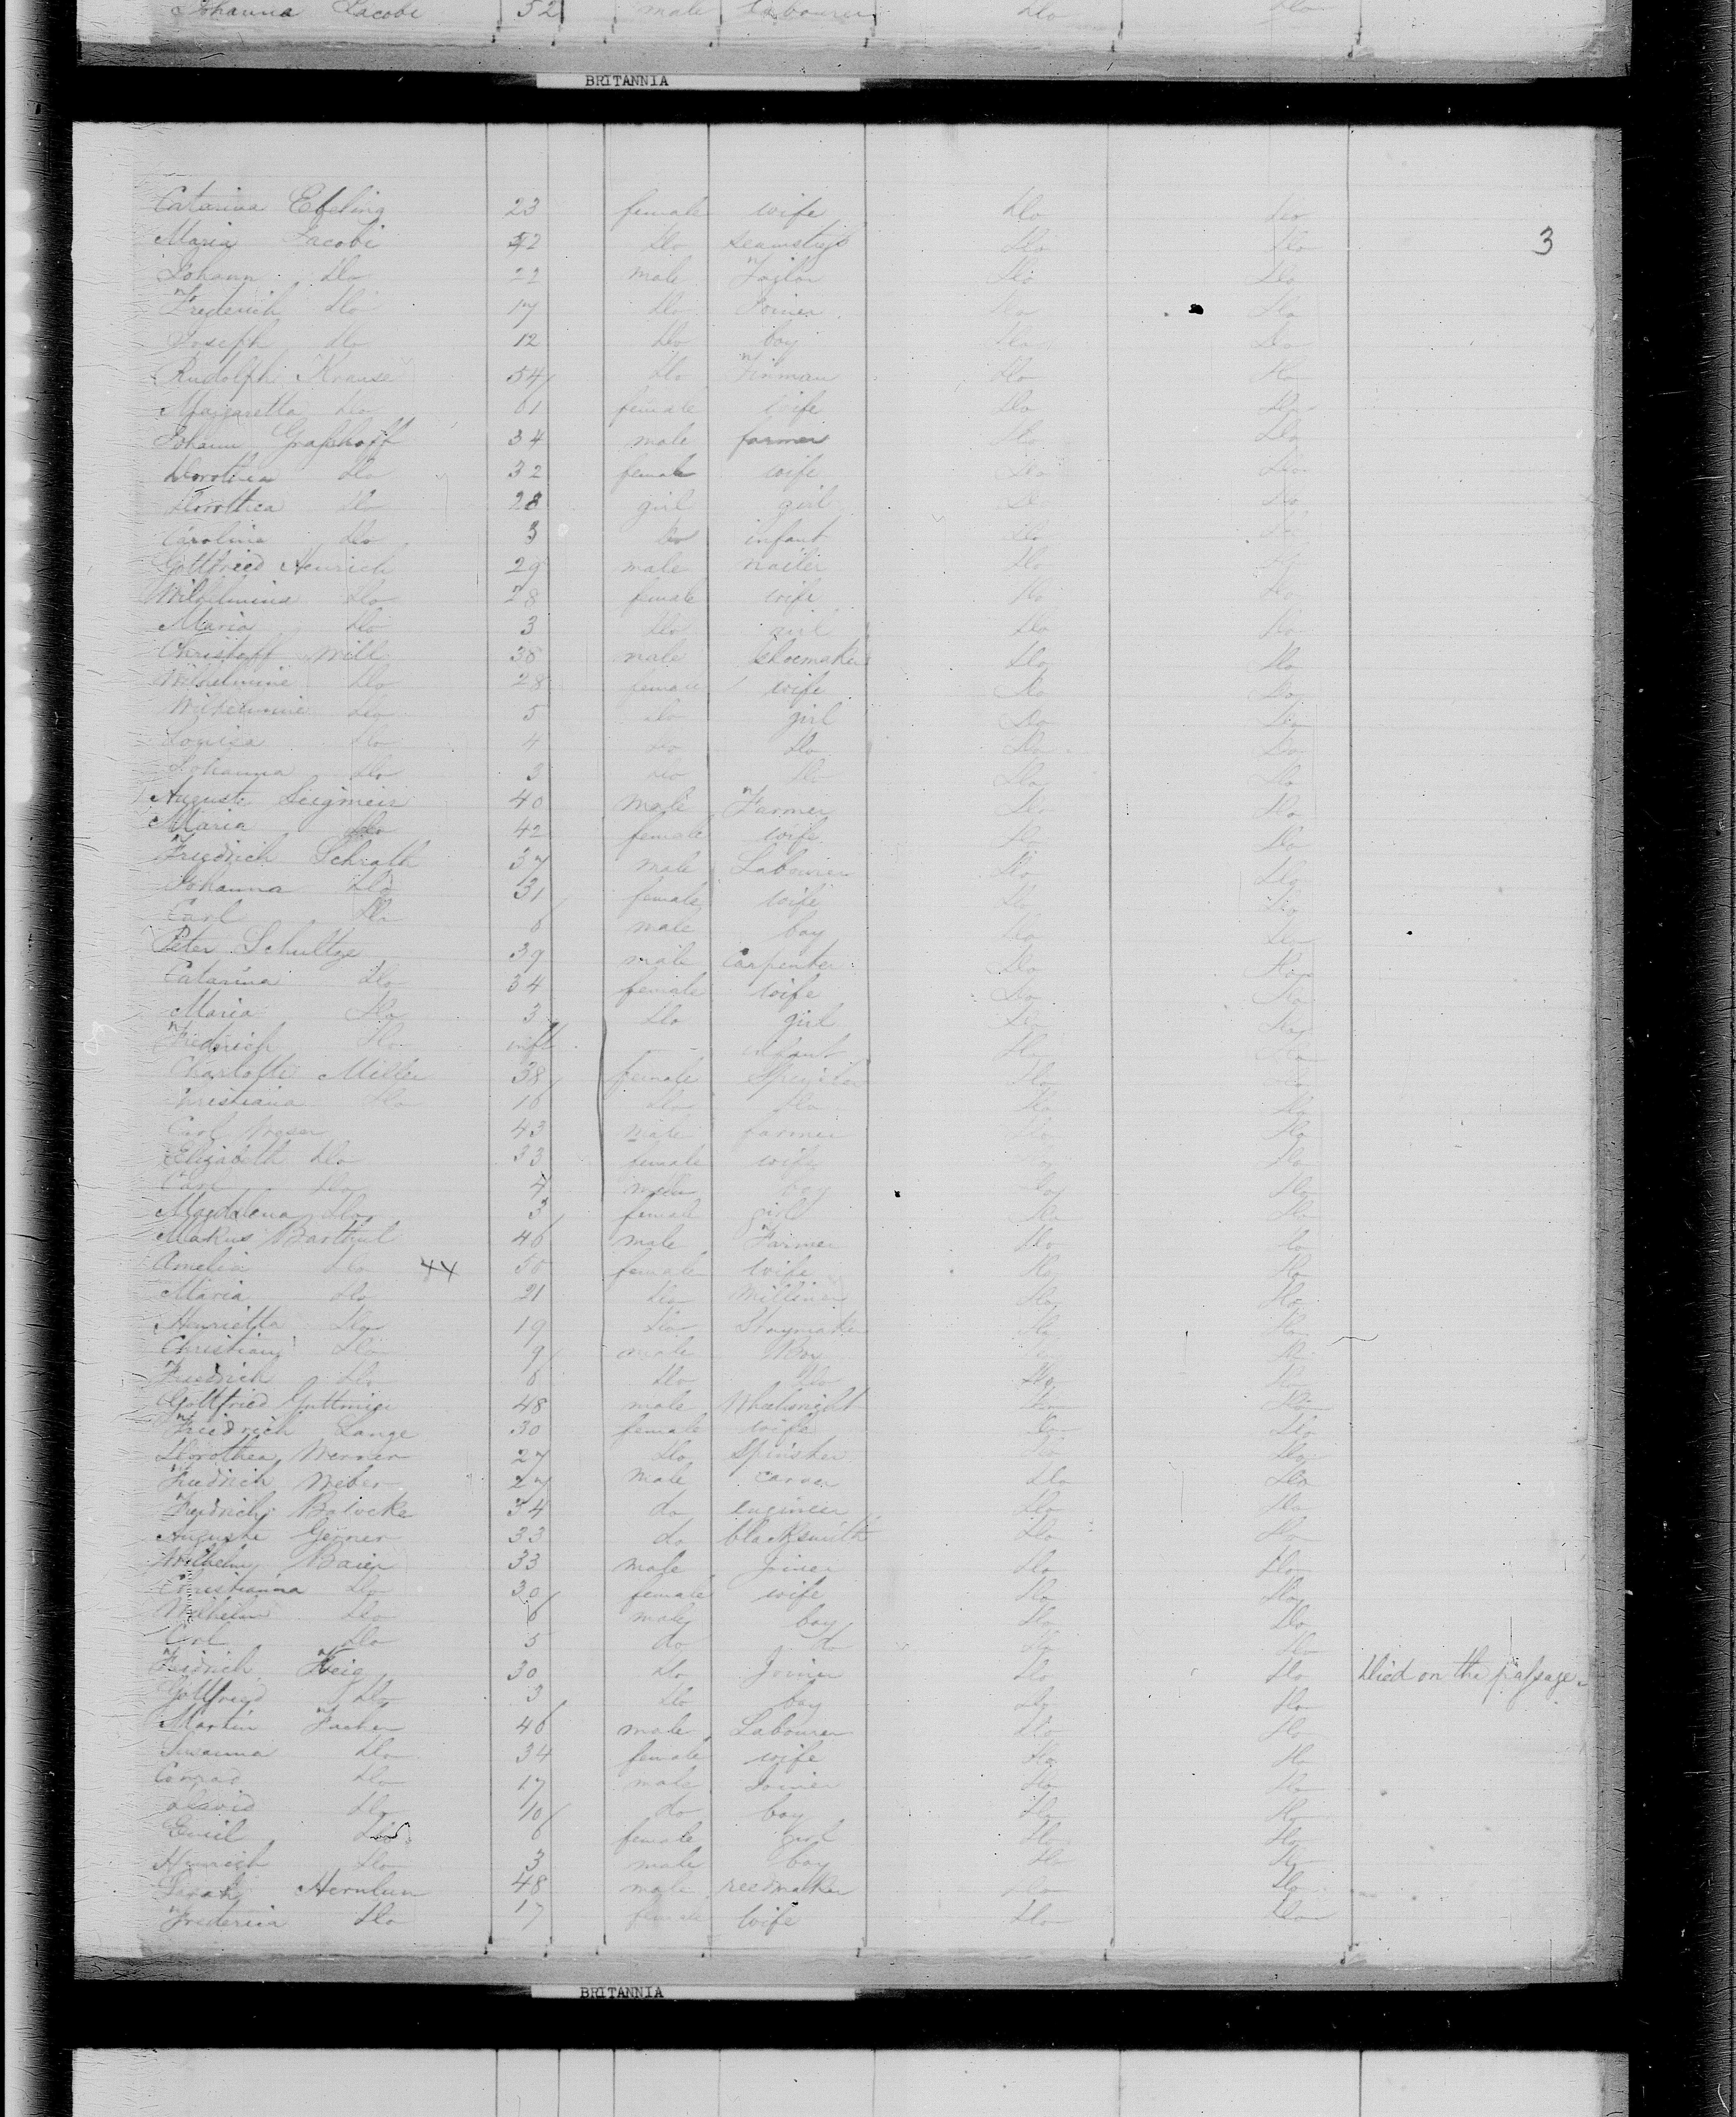 Johanna Jacobi 52 male labourer Do Do
BRITANNIA
3
Catarina Ebeling 23 female wife Do Do
Maria Jacobi 52 Do seamstress Do Do
Johann Do 22 male Tailor Do Do
Frederich Do 17 Do Joiner Do Do
Joseph Do 12 Do boy Do Do
Rudolph Krause 54 Do Do Do
Margaretta Do 61 female wife Do Do
Johann Graphoff 34 male farmer Do Do
Dorothea Do 32 female wife Do Do
Dorothea Do 28 girl girl Do Do
Carolina Do 3 Do infant Do Do
Gottfried Henrich 29 male nailer Do Do
Wilhelmina Do 28 female wife Do Do
Maria Do 3 Do girl Do Do
Christoff Will 38 male shoemaker Do Do
Wilhelmine Do 28 female wife Do Do
Wilhelmine Do 5 Do girl Do Do
Louisa Do 4 Do Do Do Do
Johanna Do 3 Do Do Do Do
August Siegmeir 40 male Farmer Do Do
Maria Do 42 female wife Do Do
Friedrich Schrath 37 male Labourer Do Do
Johanna Do 31 female wife Do Do
Carl Do 6 male boy Do Do
Peter Schultze 39 male Carpenter Do Do
Catarina Do 34 female wife Do Do
Maria Do 3 Do girl Do Do
Friedrich Do inft infant Do Do
Charlotte Miller 38 female Spinster Do Do
Christiana Do 16 Do Do Do Do
Carl 43 male farmer Do Do
Elizabeth Do 33 female wife Do Do
Carl Do 4 male boy Do Do
Magdalena Do 3 female girl Do Do
Makus Barthul 46 male Farmer Do Do
Amelia Do 50 female wife Do Do
Maria Do 21 Do Milliner Do Do
Henrietta Do 19 Do Staymaker Do Do
Christian Do 9 male Boy Do Do
Friedrich Do 6 Do Do Do Do
Gottfried 48 male Wheelwright Do Do
Friedrich Lange 30 female wife Do Do
Dorothea Werner 27 Do Spinster Do Do
Friedrich Weber 27 male carver Do Do
Friedrich Balocke 34 do engineer Do Do
Auguste Gerner 33 do blacksmith Do Do
Wilhelm Baier 33 male Joiner Do Do
Christianna Do 30 female wife Do Do
Wilhelm Do 6 male boy Do Do
Carl Do 5 do do Do Do
Fredrich Feig 30 Do Joiner Do Do Died on the passage.
Gottfried Do 3 Do boy Do Do
Martin Facher 46 male Labourer Do Do
Susanna Do 34 female wife Do Do
Conrad Do 17 male Joiner Do Do
David Do 10 do boy Do Do
Emil Do 6 female girl Do Do
Heinrich Do 3 male boy Do Do
Sarah 48 male reedmaker Do Do
Frederica Do 17 female wife Do Do
BRITANNIA